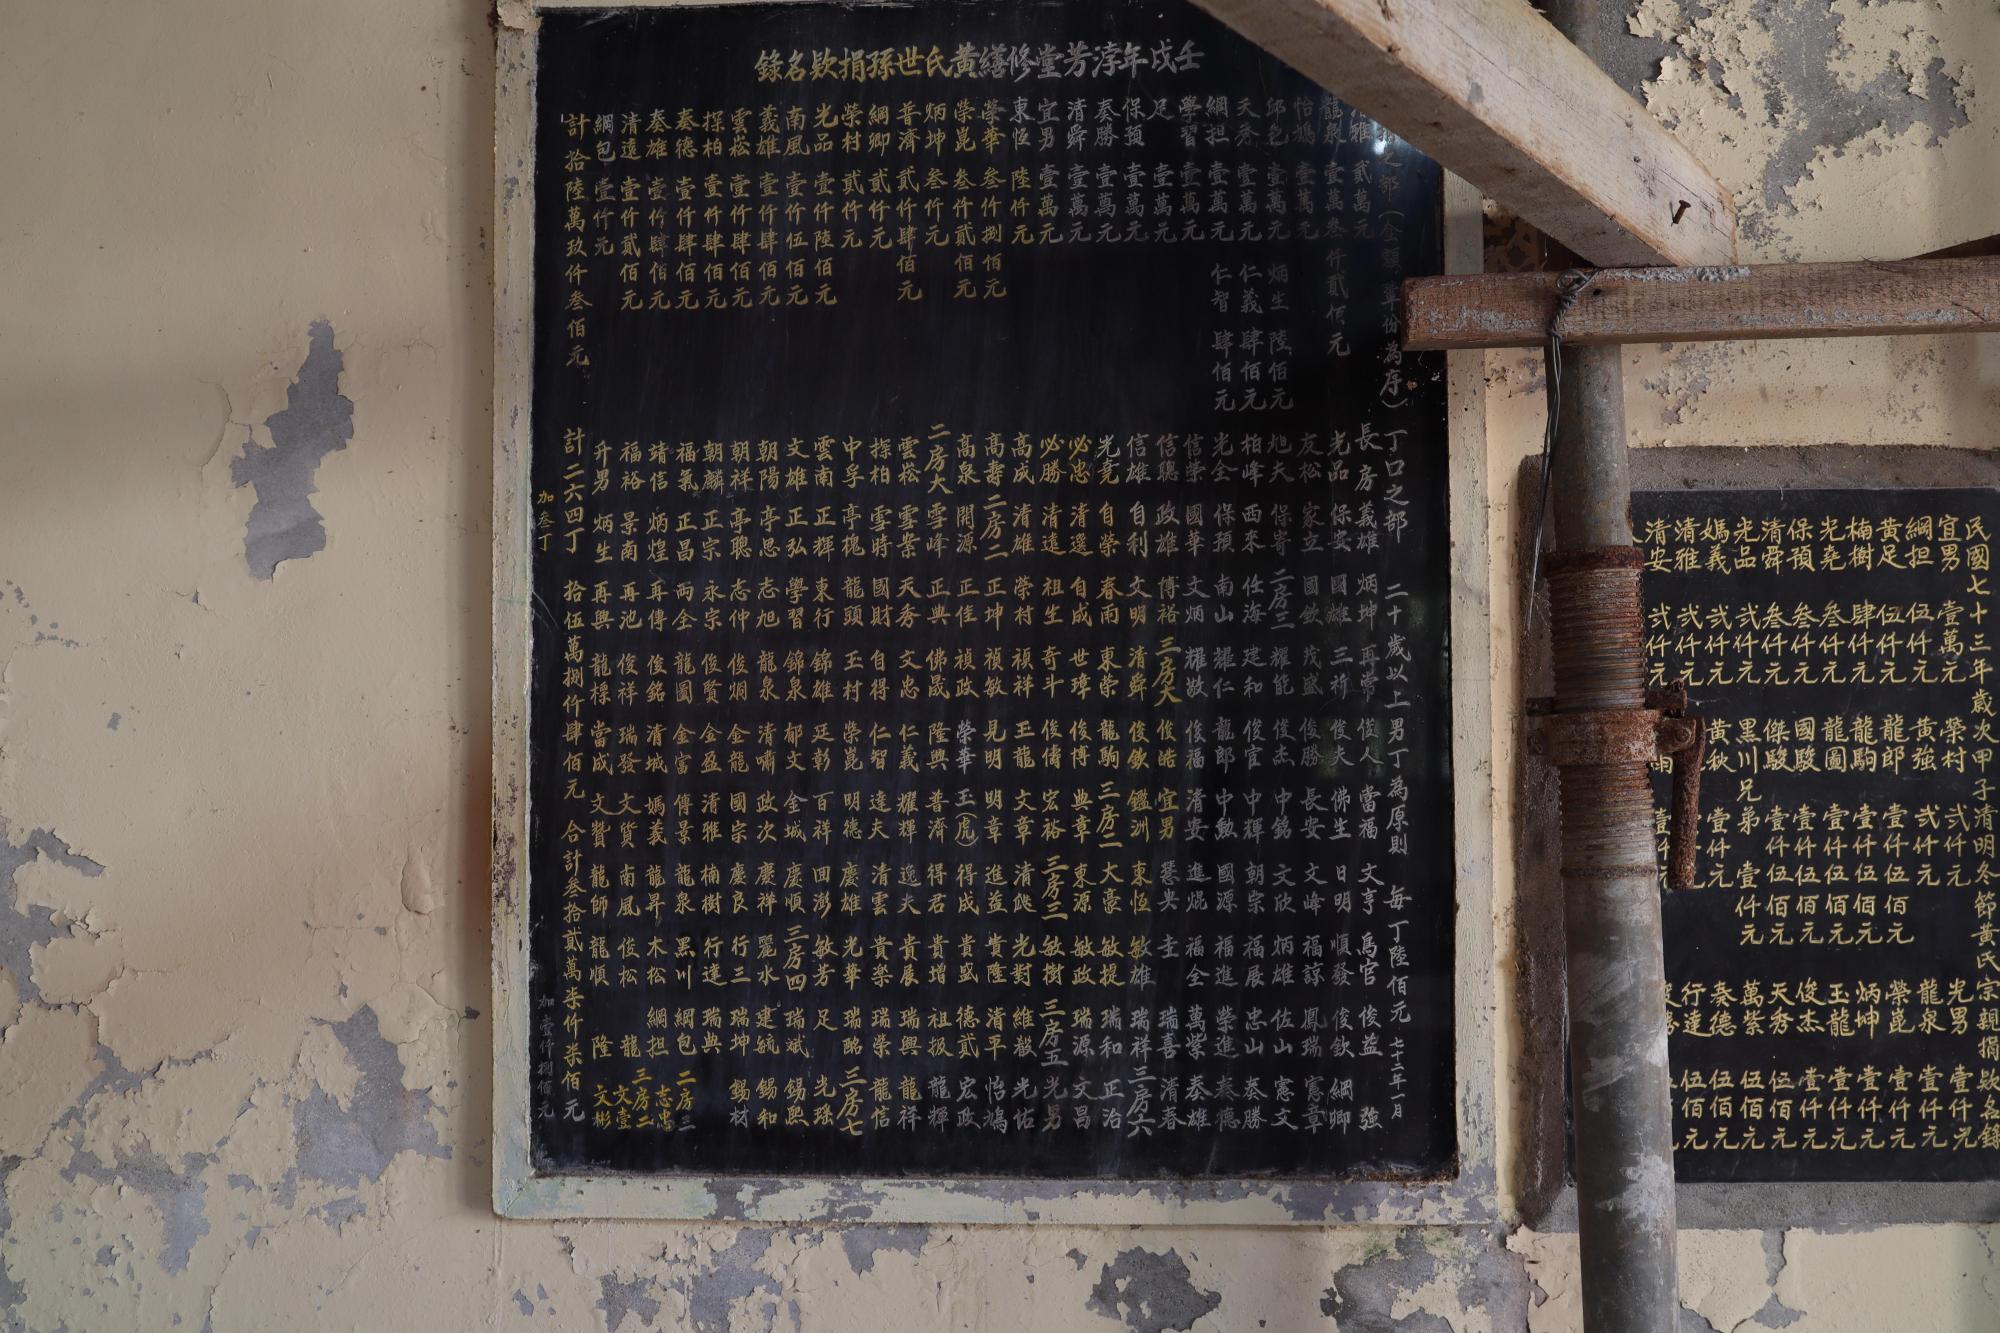 壬戌年渟芳堂修繕黃氏世孫捐欵名錄
龍泉 壹萬叁仟貳佰元
怡鴻 壹萬元
邱色 壹萬元 炳生 陸佰元
天秀 壹萬元 仁義 肆佰元
綱担 壹萬元 仁智 肆佰元
學習 壹萬元
足 壹萬元
保預 壹萬元
奏勝 壹萬元
清舜 壹萬元
宜男 壹萬元
東恆 陸仟元
榮華 叁仟捌佰元
榮崑 叁仟貳佰元
炳坤 叁仟元
普濟 貳仟肆佰元
綱卿 貳仟元
榮村 貳仟元
光品 壹仟陸佰元
南風 壹仟伍佰元
義雄 壹仟肆佰元
雲崧 壹仟肆佰元
探柏 壹仟肆佰元
奏德 壹仟肆佰元
奏雄 壹仟肆佰元
清遠 壹仟貳佰元
綱包 壹仟元
計拾陸萬玖仟叁佰元
丁口之部 二十歲以上男丁為原則 每丁陸佰元 七十二年一月
長房 義雄 炳坤 再常 俊人 當福 文亨 鳥官 俊益 強
光品 保安 國雄 三祈 俊夫 佛生 日明 順發 俊欽 綱卿
友松 家立 國欽 茂盛 俊勝 長安 文峰 福諒 鳳瑞 憲章
旭夫 保寄 二房三 耀能 俊杰 中銘 文欣 炳雄 佐山 憲文
柏峰 西來 任海 建和 俊官 中輝 朝宗 福展 忠山 奏勝
光全 保預 南山 耀仁 龍郎 中勳 國源 福進 榮進 奏德
信榮 國華 文炳 耀敬 俊福 清安 進焜 福全 萬紫 奏雄
信聰 政雄 博裕 三房大 俊皓 宜男 慧央 圭 瑞喜 清春
信雄 自利 文明 清舜 俊欽 鑑洲 東恆 敏雄 瑞祥 三房六
光堯 自榮 春雨 東榮 龍駒 三房二 大豪 敏提 瑞和 正治
必忠 清選 自成 世璋 俊博 典章 東源 敏政 瑞源 文昌
必勝 清遠 祖生 奇斗 俊儔 宏裕 三房三 敏樹 三房五 光男
高成 清雄 榮村 禎祥 玉龍 文章 清 光對 維殷 光佑
高壽 二房二 正坤 禎敏 見明 明章 進益 貴隆 清平 怡鴻
高泉 開源 正佳 禎政 榮華 玉(虎) 得成 貴盛 德貳 宏政
二房大 雪峰 正典 佛晟 隆興 普濟 得君 貴增 祖扱 龍輝
雲崧 雪崇 天秀 文忠 仁義 耀輝 逸夫 貴展 瑞興 龍祥
探柏 雪時 國財 自得 仁智 達夫 清雲 貴楽 瑞榮 龍信
中孚 亭槐 龍頭 玉村 榮崑 明德 慶雄 光華 瑞昭 三房七
雲南 正輝 東行 錦雄 廷彰 百祥 田澎 敏芳 足 光瑤
文雄 正弘 學習 錦泉 郁文 金城 慶順 三房四 瑞斌 錫熙
朝陽 亭忠 志旭 龍泉 清嘯 政次 慶祥 麗水 建毓 錫和
朝祥 亭聰 志仲 俊炯 金龍 國宗 慶良 行三 瑞坤 錫材
朝麟 正宗 永宗 俊賢 金盈 清雅 楠樹 行達 瑞典
福氣 正昌 兩全 龍圖 金富 傳景 龍泉 黑川 綱包 二房三 志忠
靖信 炳煌 再傳 俊銘 清城 媽義 龍昇 木松 綱担
福裕 景南 再池 俊祥 瑞發 文質 南風 俊松 龍 三房二 文壹
升男 炳生 再興 龍標 當成 文贊 龍師 龍順 隆 文彬
計二六四丁 拾伍萬捌仟肆佰元 合計叁拾貳萬柒仟柒佰元
加叁丁 加壹仟捌佰元
民國七十三年歲次甲子清明冬節黃氏宗親捐欵名錄
宜男 壹萬元 榮村 貳仟元 光男 壹仟元
綱担 伍仟元 黃強 貳仟元 龍泉 壹仟元
黃足 伍仟元 龍郎 壹仟伍佰元 榮崑 壹仟元
楠樹 肆仟元 龍駒 壹仟伍佰元 炳坤 壹仟元
光堯 叁仟元 龍圖 壹仟伍佰元 玉龍 壹仟元
保預 叁仟元 國駿 壹仟伍佰元 俊杰 壹仟元
清舜 叁仟元 傑駿 壹仟伍佰元 天秀 伍佰元
光品 弍仟元 黑川兄弟 壹仟元 萬紫 伍佰元
媽義 弍仟元 黃秋 壹仟元 奏德 伍佰元
清雅 弍仟元 行達 伍佰元
清安 弍仟元